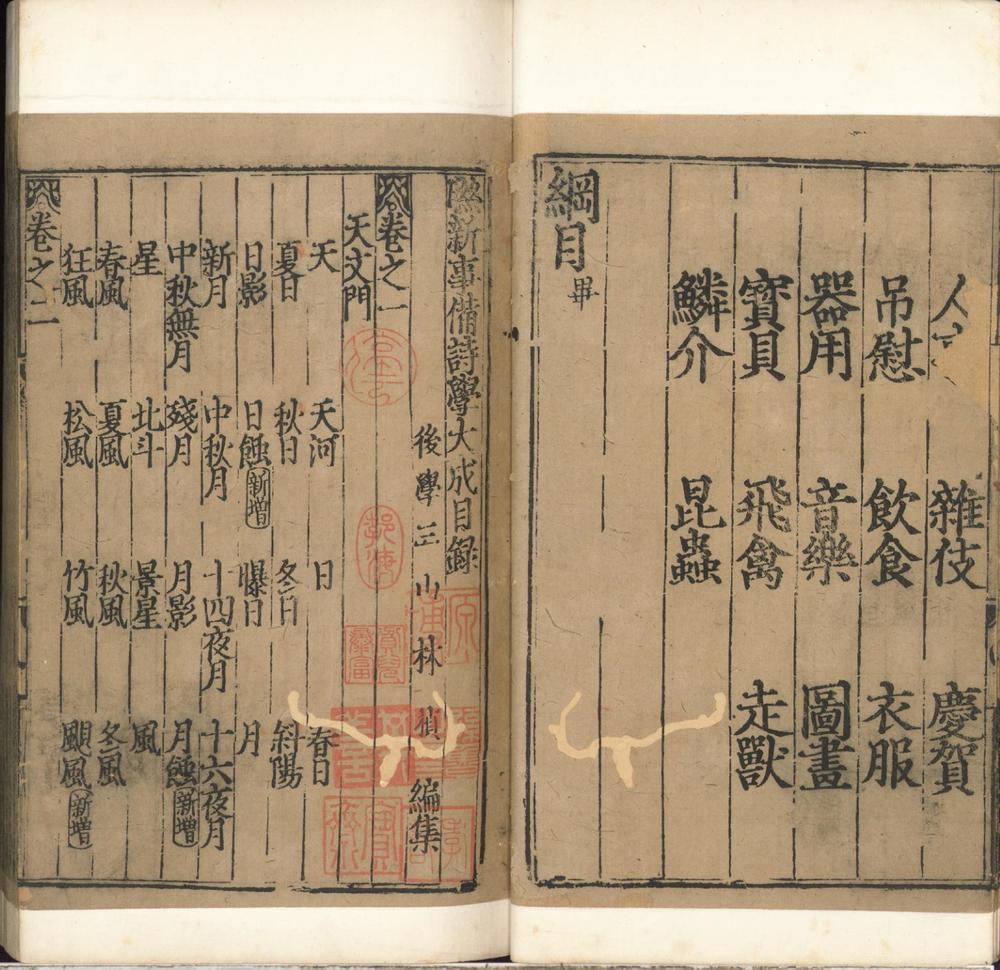 人 雜伎 慶賀
吊慰 飲食 衣服
器用 音樂 圖畫
寶貝 飛禽 走獸
鱗介 昆蟲
綱目畢
聯新事備詩學大成目録
後學三山林楨編集
卷之一
天文門
天 天河 日 春日
夏日 秋日 冬日 斜陽
日影 日蝕新增 曝日 月
新月 中秋月 十四夜月 十六夜月
中秋無月 殘月 月影 月蝕新增
星 北斗 景星 風
春風 夏風 秋風 冬風
狂風 松風 竹風 風新增
卷之二